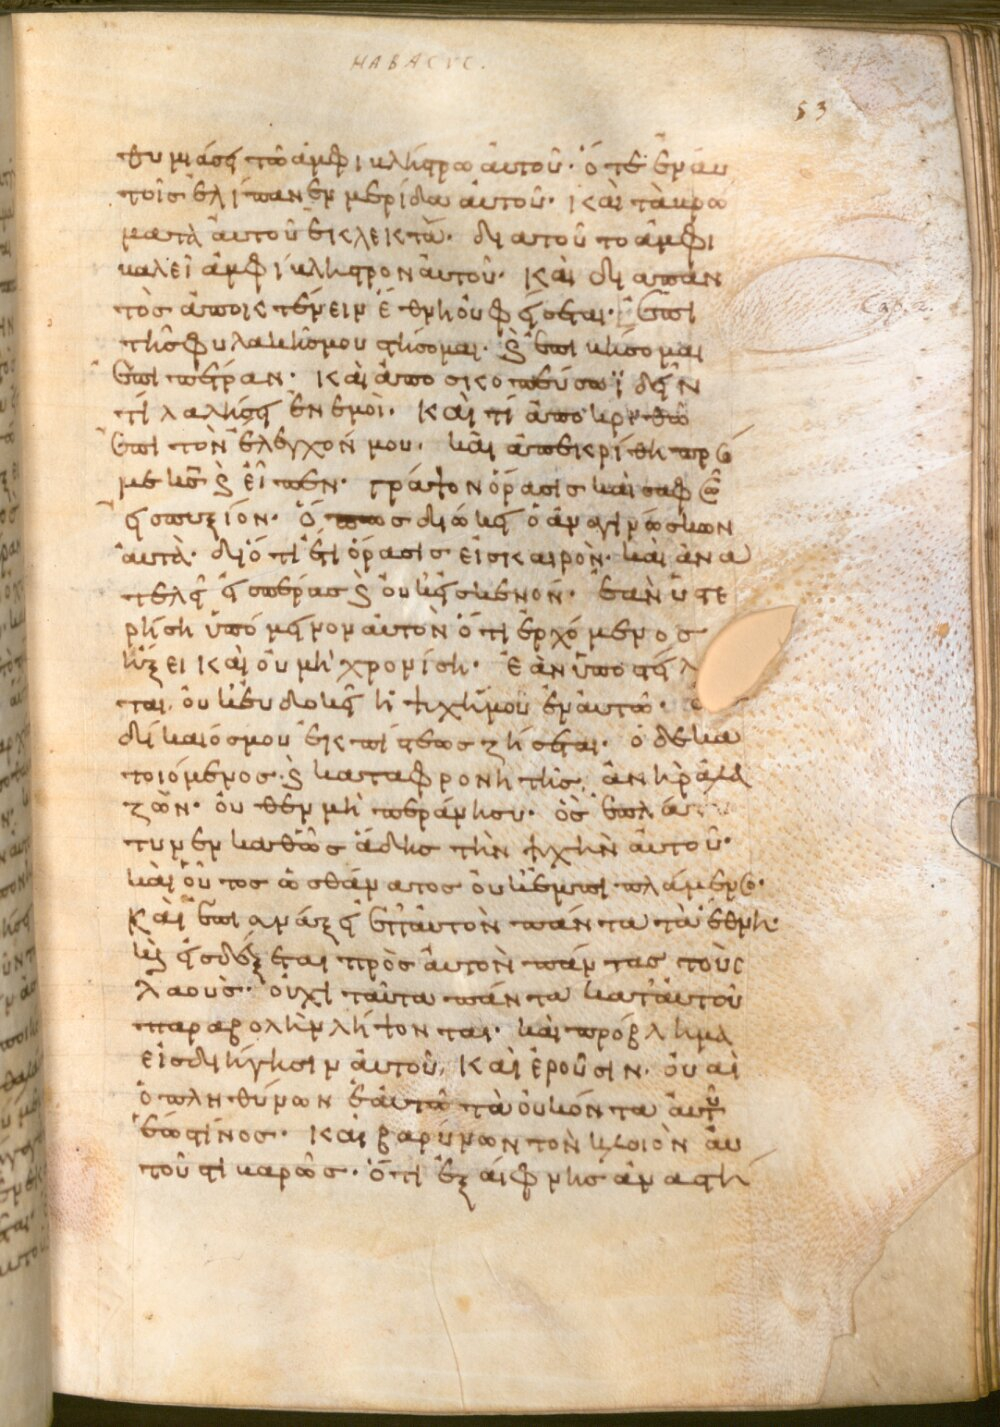 HABACVC.
53
θυμιάσει τῶ ἀμφικλήστρω ἀυτοῦ· ὅτι ἐν ἀυ
τοῖσ ἐλίπανεν μερίδα ἀυτοῦ· καὶ τὰ βρώ
ματα ἀυτοῦ ἐκλεκτὰ· διατοῦτο ἀμφι
βαλεῖ ἀμφίκληστρον ἀυτοῦ· Καὶ διαπαν
τὸσ ἀποκτέννειν ἔθνη ὀυ φείσεται· Ἐπὶ
Cap. 2.
τῆσ φυλακῆσ μου στήσομαι· καὶ ἐπιβήσομαι
ἐπὶ πέτραν· καὶ ἀποσκοπεύσω ϊδεῖν
τί λαλήσει ἐν ἐμοὶ· Καὶ τί ἀποκριθῶ
ἐπὶ τὸν ἔλεγχόν μου· καὶ ἀπεκρίθη πρὸσ
με κσ̄ καὶ εἶπεν· γράψον ὅρασιν καὶ σαφῶσ
εισ πυξίον· ὅπωσ διώκει ὁ ἀναγινώσκων
ἀυτὰ· διότι ἔτι ὅρασισ εἰσ καιρὸν· καὶ ἀνα
τελεῖ εἰσ πέρασ καὶ ὀυκ εἰσ κενόν· ἐὰν ὑστε
ρήση ὑπόμεινον ἀυτὸν ὅτι ἐρχόμενοσ
ἥξει καὶ ὀυ μὴ χρονίση· Ἐὰν ὑποστείλ
ται ὀυκ ἐυδοκεῖ ἡ ψυχή μου ἐν ἀυτῶ·
δίκαιόσ μου ἐκ πίστεωσ ζήσεται· ὁ δὲ κα
τοιόμενοσ καὶ καταφρονητὴσ ἀνὴρ ἀλα
ζὼν· ὀυθὲν μὴ περάνησυ· ὃσ ἐπλά
τυνεν καθὼσ ἅδησ τὴν ψυχὴν ἀυτοῦ·
καὶ οὗτοσ ὡσ θάνατοσ ὀυκ ἐμπιπλάμενοσ·
Καὶ ἐπισυνάξει ἐπ' ἀυτὸν πάντα τὰ ἔθνη·
καὶ εἰσδέξεται πρὸσ ἀυτὸν πάντασ τοὺσ
λαοὺσ· ὀυχὶ ταῦτα πάντα κατ' ἀυτοῦ
παραβολὴν λήψονται· καὶ πρόβλημα
εἰσ διήγησιν ἀυτοῦ· Καὶ ἐροῦσιν· ὀυαὶ
ὁ πληθύνων ἑαυτῶ τὰ ὀυκ όντα ἀυτοῦ
ἕωσ τίνοσ· Καὶ βαρύνων τὸν κλοιὸν ἀυ
τοῦ στιβαρῶσ· ὅτι ἐξαίφνησ ἀναστή